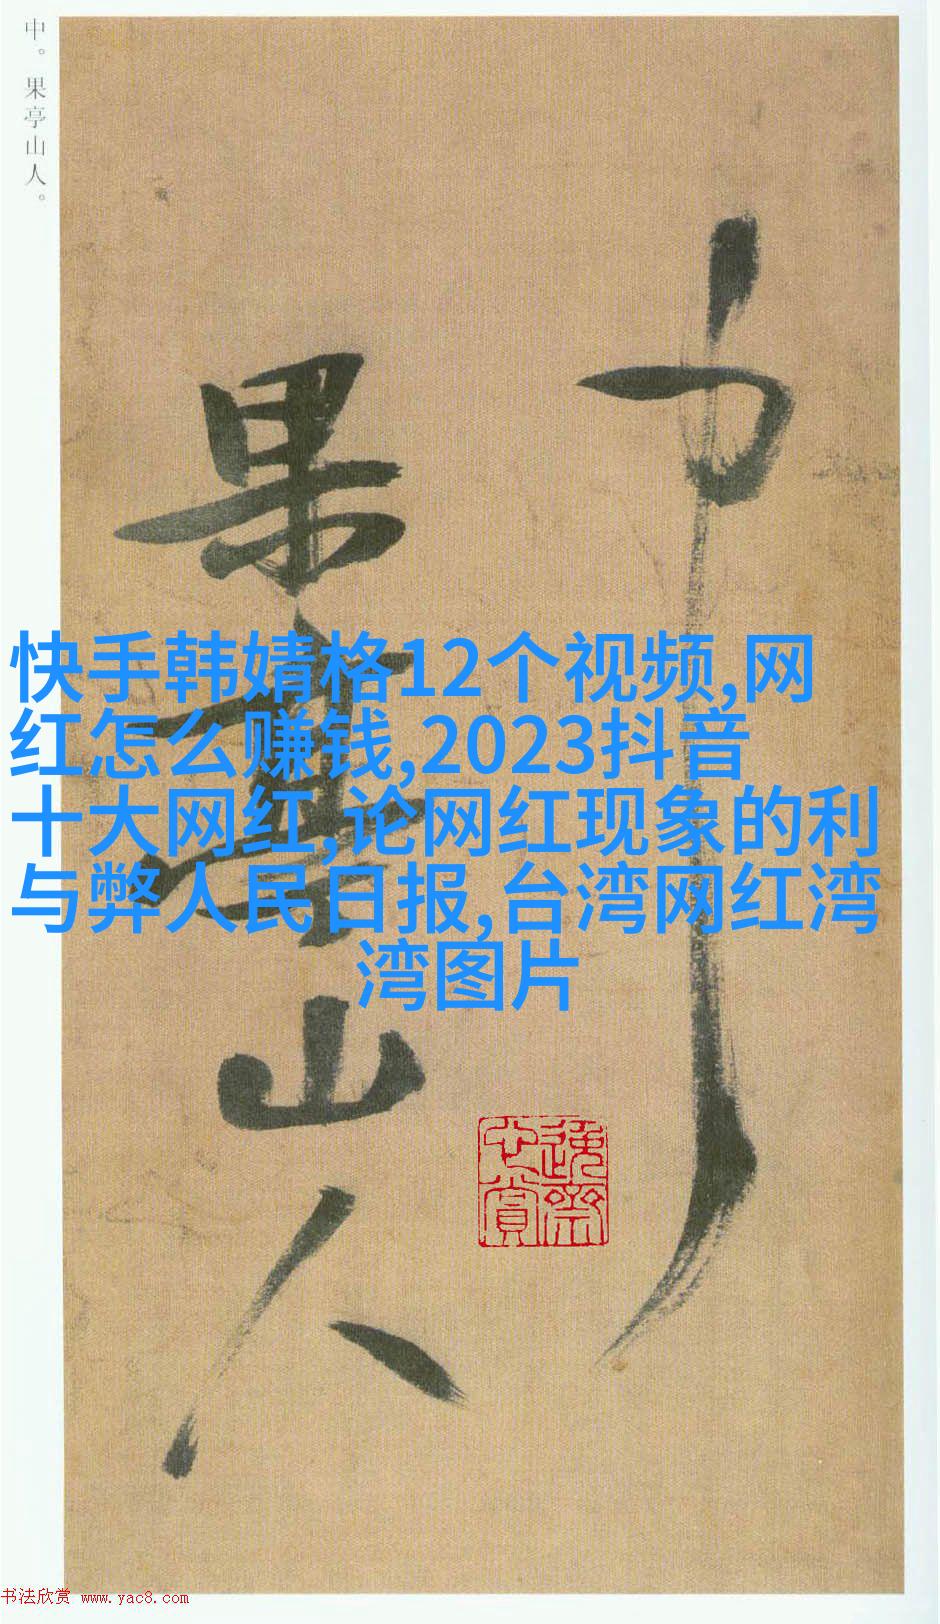 中。果亭山人。
中
果亭山人
快手韩婧格12个视频,网
红怎么赚钱,2023抖音
十大网红,论网红现象的利
与弊人民日报,台湾网红湾
湾图片
逸斋
心赏
书法欣赏 www.yac8.com